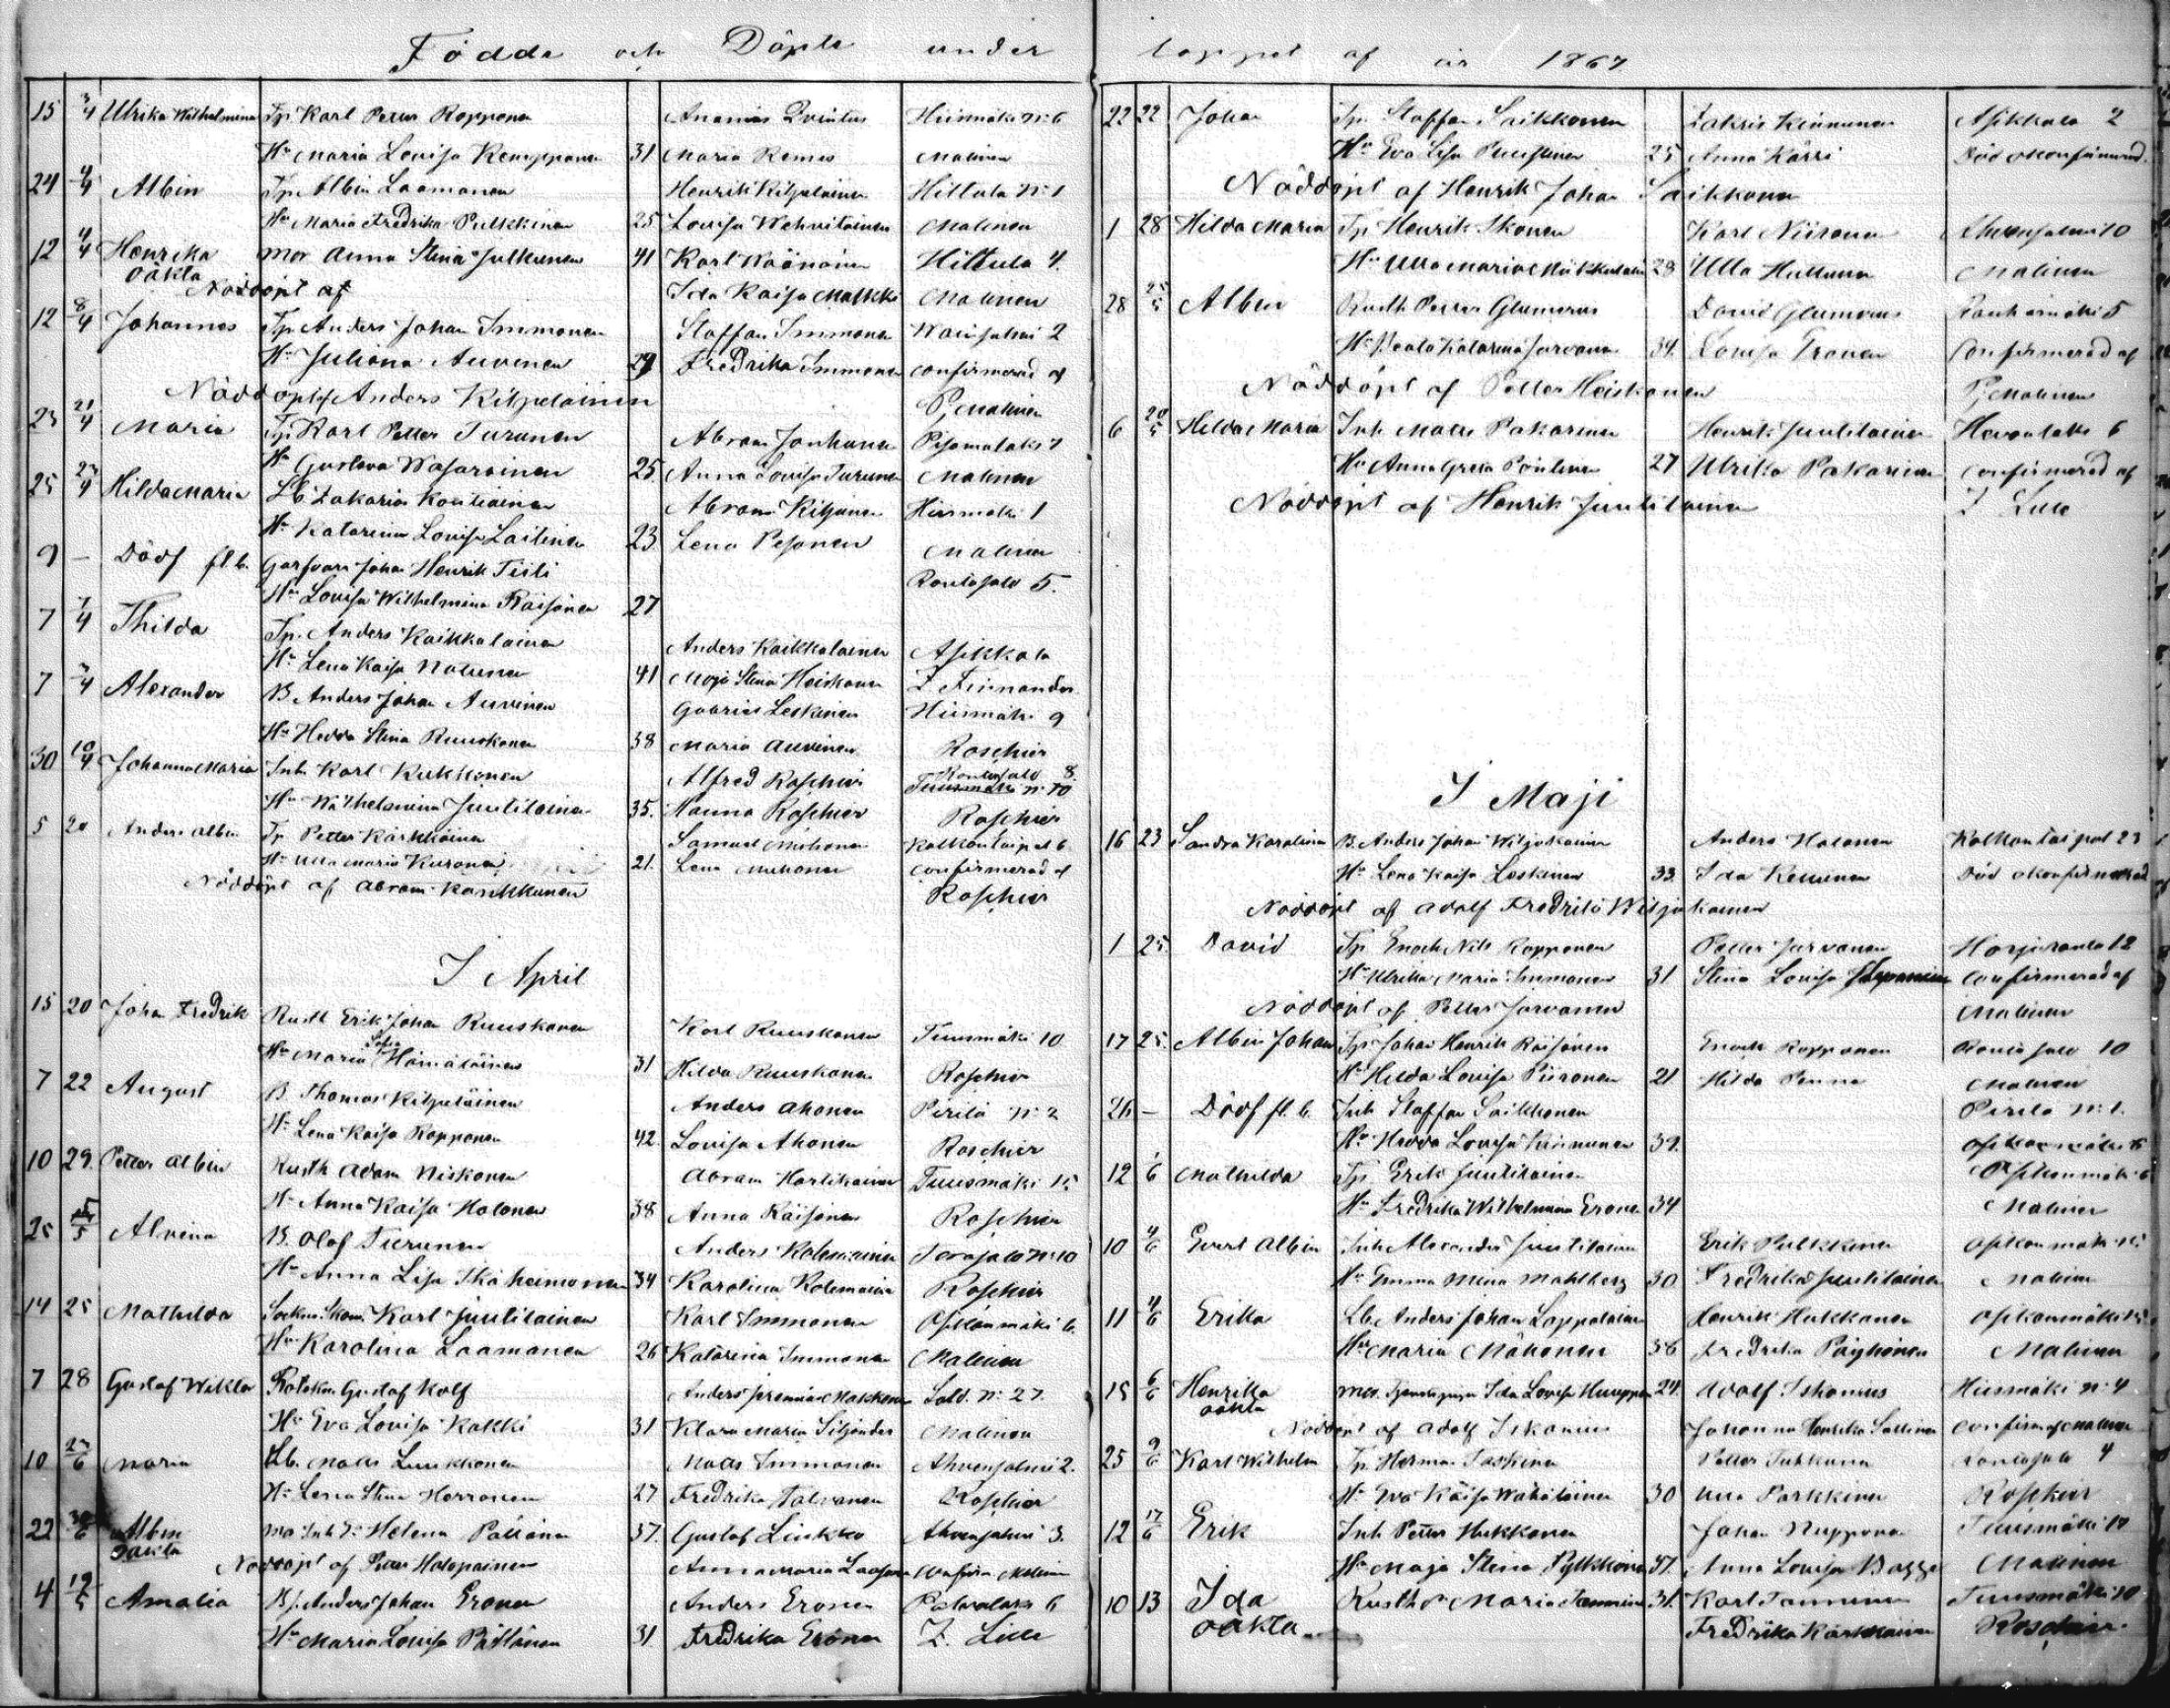 Födde och Döpte under loppet af år 1867
15 3/4 Ulrika Wilhelmina Tp. Karl Petter Ropponen Ananias Qvintus Hiismäki N:o 6
Hu Maria Lovisa Kemppanen 31 Maria Remes Malinen
24 4/4 Albin Tp. Albin Laamanen Henrik Kilpeläinen Hittula N:o 1
Hu Maria Fredrika Pulkkinen 25 Lovisa Wahvilainen Malinen
12 4/4 Henrika Mor Anna Stina Julkunen 41 Karl Wäänänen Hittula 4.
oäkta Nöddöpt af Ida Kaisa Malkki Malinen
12 8/4 Johannes Tp. Anders Johan Immonen Staffan Immonen 2
Hu Juliana Auvinen 29 Fredrika Immonen confirmerad af
Nöddöpt af Anders Kilpeläinen Pj Malinen
23 21/4 Maria Tp. Karl Petter Turunen Abram Janhunen 7
Hu Gustava Wasarainen 25 Anna Lovisa Turunen Malinen
25 23/4 Hilda Maria Lb. Zakarias Kontiainen Abram Kiljunen Hiismäki 1
Hu Katarina Lovisa Laitinen 23 Lena Pesonen Malinen
9 – Dödf fl b. Johan Henrik Tiili Rantasalo 5.
Hu Lovisa Wilhelmina Räisänen 27
7 7/4 Thilda Tp. Anders Kaikkalainen Anders Kaikkalainen Asikkala
Hu Lena Kaisa Natunen 41 Maja Stina Heiskanen Z. Finnander
7 7/4 Alexander B. Anders Johan Auvinen Gabriel Leskinen Hiismäki 9
Hu Hedda Stina Ruuskanen 38 Maria Auvinen Roschier
30 10/4 Johanna Maria Inh. Karl Kukkonen Alfred Roschier Rantasalo 8.
Hu Wilhelmina Juutilainen 35. Hanna Roschier Roschier
5 20 Anders Albin Tp. Petter Kärkkäinen Samuel Muhonen 6
Hu Ulla Maria Kuronen 21. Lena Muhonen confirmerad af
Nöddöpt af Abram Karkkunen Roschier
I April
15 20 Johan Fredrik Rusth Erik Johan Ruuskanen Karl Ruuskanen Tuusmäki 10
Hu Maria Sofia Hämäläinen 31 Hilda Ruuskanen Roschier
7 22 August B. Thomas Kilpeläinen Anders Ahonen Pirilä N:o 2
Hu Lena Kaisa Ropponen 42. Lovisa Ahonen Roschier
10 29. Petter Albin Rusth Adam Niskanen Abram Hartikainen Tuusmäki 15
Hu Anna Kaisa Halonen 38 Anna Räisänen Roschier
25 5 Alvina B. Olof Tiurunen Anders Kolemainen N:o 10
Hu Anna Lisa Ikäheimonen 34 Karolina Kolemainen Roschier
14 25 Mathilda Karl Juutilainen Karl Immonen Osikonmäki 6.
Hu Karolina Laamanen 26 Katarina Immonen Malinen
7 28 Gustaf Wiktor Gustaf Kolf Anders Jeremias Makkonen Sold. N:o 27.
Hu Eva Lovisa Kakki 31 Klara Maria Siljander Malinen
10 27/6 Maria Lb. Mats Luukkonen Mats Immonen Ahvensalmi 2.
Hu Lena Stina Herranen 27 Fredrika Talvanen Roschier
22 30/6 Albin Helena Pöllänen 37. Gustaf Liukko Ahvensalmi 3.
oäkta Nöddöpt af Petter Halopainen Anna Maria
4 19/5 Amalia B. Anders Johan Eronen Anders Eronen 6
Hu Maria Lovisa Pöllänen 31 Fredrika Eronen Z. Lille
22 22 Johan Tp. Staffan Saikkonen Zakris Kinnunen Asikkala 2
Hu Eva Lisa Puustinen 25 Anna Kärri Död okonfirmerad.
Nöddöpt af Henrik Johan Saikkonen
1 28 Hilda Maria Tp. Henrik Ikonen Karl Niiranen Ahvensalmi 10
Hu Ulla Maria 28 Ulla Huttunen Malinen
28 25/5 Albin Rusth Petter Glumerus David Glumerus 5
Hu Katarina Jarvanen 34. Lovisa Tronen confirmerad af
Nöddöpt af Petter Heiskanen Pj Malinen
6 20/5 Hilda Maria Inh. Mats Pakarinen Henrik Juutilainen Hevonlaks 6
Hu Anna Greta Pöntinen 27 Ulrika Pakarinen confirmerad af
Nöddöpt af Henrik Juutilainen Z Lille
I Maji
16 23 Sandra Karolina B. Anders Johan Wiljakainen Anders Halonen 23
Hu Lena Kaisa Leskinen 33. Ida Keinonen Död okonfirmerad
Nöddöpt af Adolf Fredrik Wiljakainen
1 25. David Tp. Enoch Nils Ropponen Petter Jarvanen Harjuranta 12
Hu Ulrika Maria Immonen 31 Stina Lovisa confirmerad af
Nöddöpt af Petter Jarvanen Malinen
17 25. Albin Johan Tp. Johan Henrik Räisänen Enoch Ropponen Rantasalo 10
Hu Hilda Lovisa Piironen 21 Hilda Penna Malinen
26 – Dödf fl b. Inh Staffan Saikkonen Pirilä N:o 1.
Hu Hedda Lovisa Kinnunen 39.
12 1/6 Mathilda Tp. Erik Juutilainen Osikonmäki 6
Hu Fredrika Wilhelmina Eronen 34 Malinen
10 4/6 Evert Albin Inh Alexander Juutilainen Erik Pulkkinen Osikonmäki
Hu Emma Mina Mahlberg 30. Fredrika Juutilainen Malinen
11 4/6 Erika Lb. Anders Johan Lappalainen Henrik Hukkanen Osikonmäki
Hu Maria Mähönen 36 Fredrika Päiyhönen Malinen
15 6/6 Henrika Ida Lovisa 24. Adolf Ishanius Hiismäki N:o 4
oäkta Nöddöpt af Adolf Iskanius Johanna Henrika Sallinen confirm af Malinen
25 9/6 Karl Wilhelm Tp. Herman Taskinen Petter Tukkunen Rantasalo 4
Hu Eva Kaisa Wähäläinen 30 Ulla Parkkinen Roschier
12 17/6 Erik Inh Petter Hukkanen Johan Nupponen Tuusmäki 10
Hu Maja Stina Pylkkönen 37. Anna Lovisa Bagge Malinen
10 13 Ida Rusth Maria Tamminen 31. Karl Tamminen Tuusmäki 10
oäkta Fredrika Kärkkäinen Roschier.